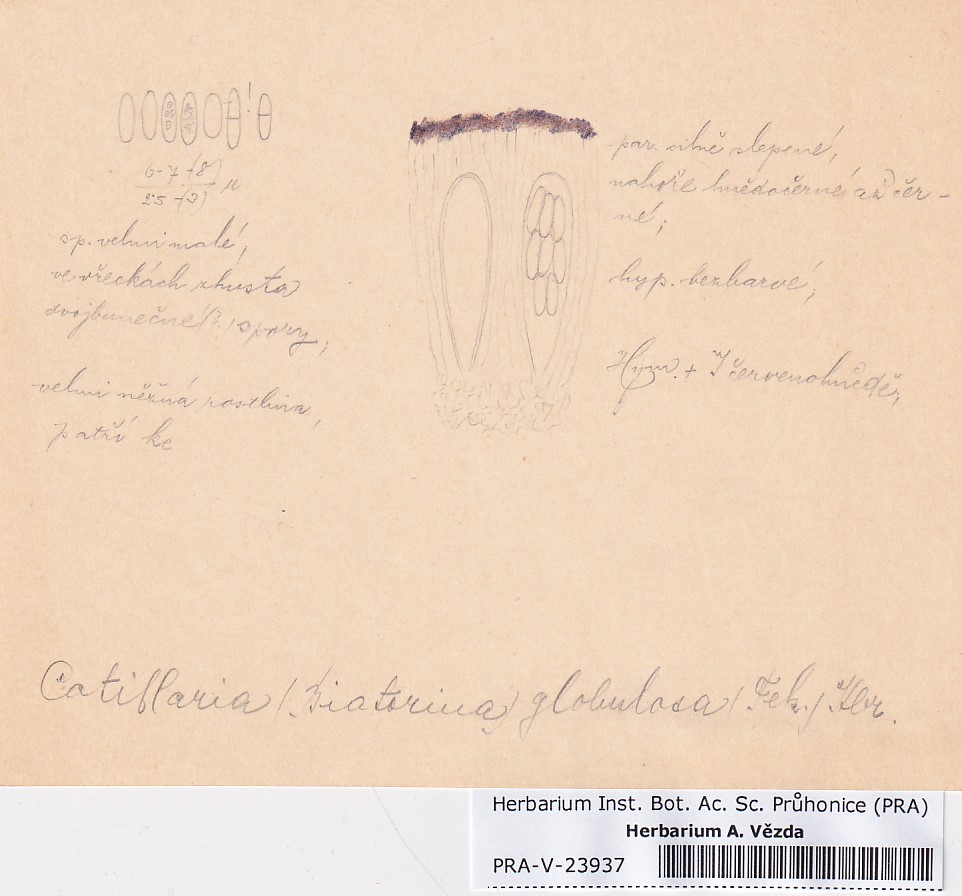 6-7-(8)
2.5-(3) µ
sp. velmi malé,
ve vřeckách zhusta
dvojbunečné (?) spory,
velmi něžná rostlina,
patří ke
par. silně slepené,
nahoře hnědočerné až čer-
né;
hyp. bezbarvé;
Hym. + J červenohnědě,
Catillaria (Biatorina) globulosa (Flk.)
Herbarium Inst. Bot. Ac. Sc. Průhonice (PRA)
Herbarium A. Vězda
PRA-V-23937